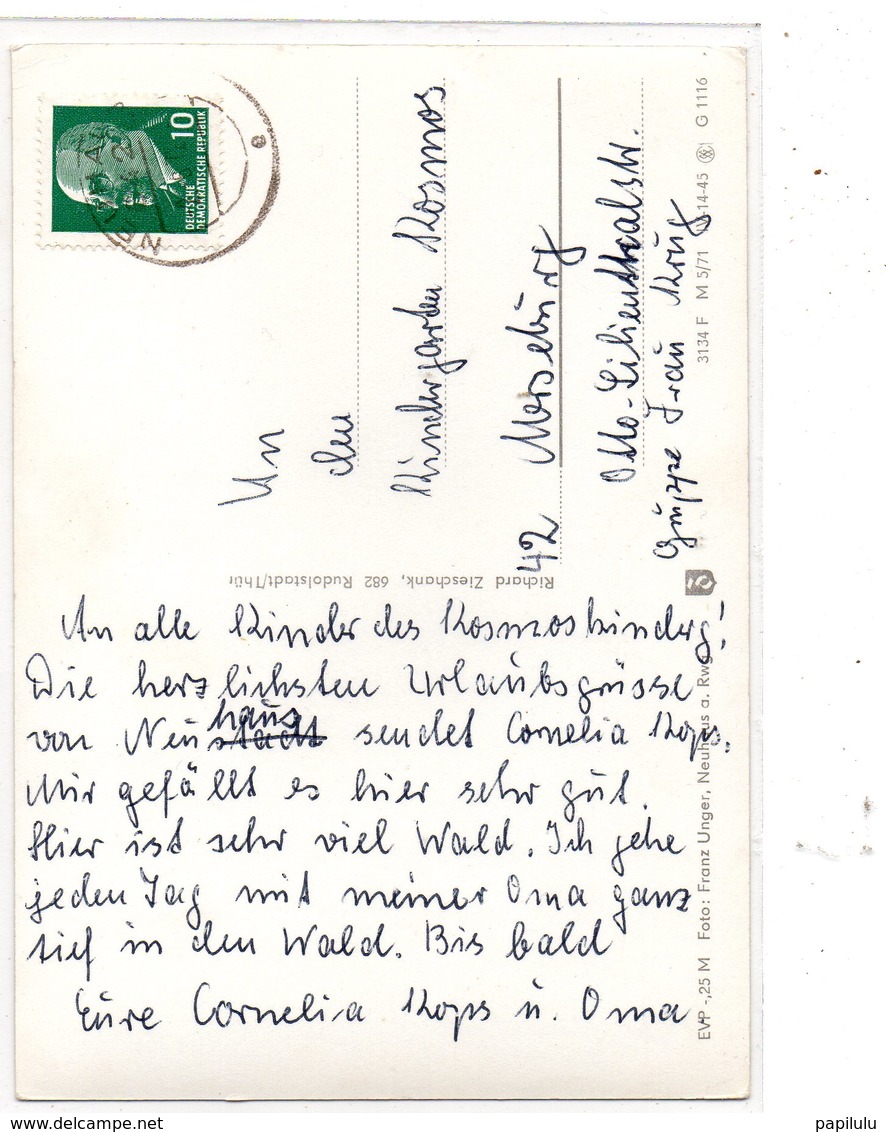 An alle Kinder des Kosmoskinderg!
Die herzlichsten Urlaubsgrüsse
von Neustadt haus sendet Cornelia Kops.
Mir gefällt es hier sehr gut.
Hier ist sehr viel Wald. Ich gehe
jeden Tag mit meiner Oma ganz
tief in den Wald. Bis bald
Eure Cornelia Kops u. Oma.
An
den
Kindergarten Kosmos
42 Merseburg
Otto-Lilienthalstr.
Gruppe Frau Krug
10
DEUTSCHE
DEMOKRATISCHE REPUBLIK
Richard Zieschank, 682 Rudolstadt/Thür
EVP -,25 M Foto: Franz Unger, Neuhaus a. Rwg.
3134 F M 5/71 IV-14-45 G 1116
papilulu